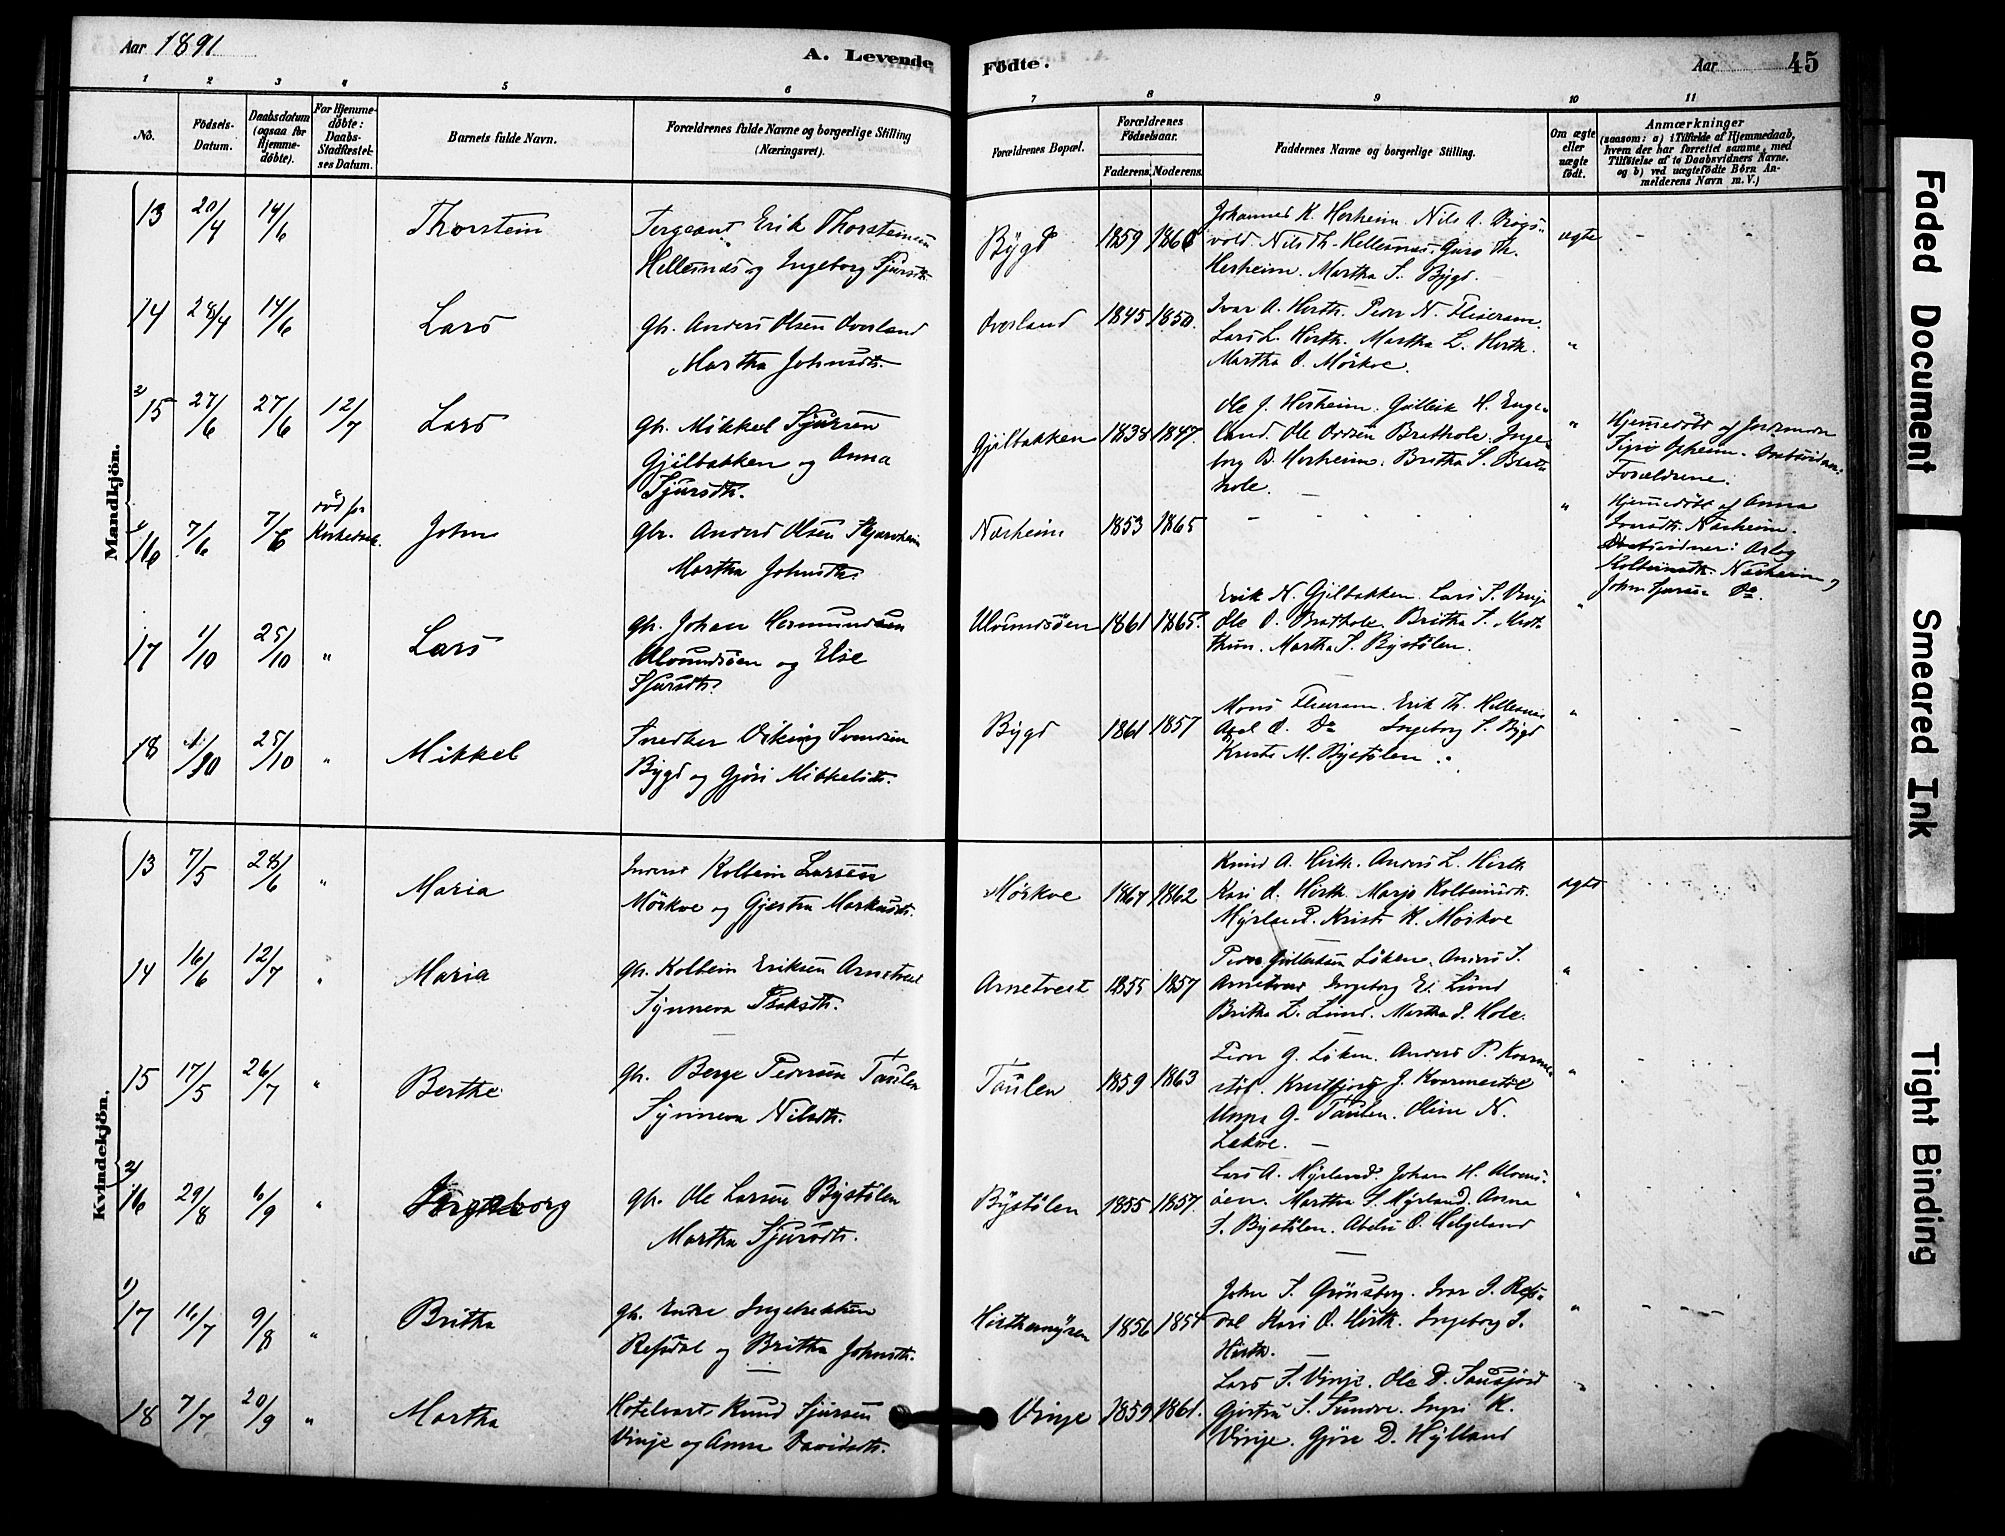 Aar 1891
A. Levende
Födte.
Aar
45
1 2 3 4 5 6 7 8 9 10 11
No.
Födsels-
Datum.
Daabsdatum
(ogsaa for
Hjemme-
döbte).
For Hjemme-
döbte:
Daabs-
Stadfæstel-
ses Datum.
Barnets fulde Navn.
Forældrenes fulde Navne og borgerlige Stilling
(Næringsvei).
Forældrenes Bopæl.
Forældrenes
Födselsaar.
Faderens. Moderens.
Faddernes Navne og borgerlige Stilling.
Om ægte
eller
uægte
födt.
Anmærkninger
(saasom: a) i Tilfælde af Hjemmedaab,
hvem der har forrettet samme, med
Tilföielse af to Daabsvidners Navne.
og b) ved uægtefödte Börn An-
melderens Navn m. V.)
Mandkjön.
13 20/4 14/6 Thorstein
Sergeant Erik Thorsteinsen
Hellesnæs og Ingeborg Sjursdtr.
Bÿgd 1859 1860
Johannes K. Herheim. Nils A.
vold. Nils Th. Hellesnæs. Guro Th.
Herheim. Martha S. Bÿgd.
ægte
14 28/4 14/6 Lars
gb. Anders Olsen Overland
Martha Johnsdtr.
Overland 1845 1850.
Ivar A. Herth. Peder N.
Lars L. Herth. Martha L. Herth.
Martha O. Mörkve.
"
2) 15 27/6 27/6 12/7 Lars
gb. Mikkel Sjursen
Gjilbakken og Anna
Sjursdtr.
Gjilbakken 1838 1847.
Ole J. Herheim. Gullik H. Enge-
land. Ole Oddsen Brathole. Inge-
borg B. Herheim. Britha S. Brat-
hole.
"
Hjemmedöbt af Jordmoder
Opheim.
Forældrene.
1) 16 7/6 7/6
död för
John
gbr. Anders Olsen
Martha Johnsdtr.
Nærheim 1853 1865
"
Hjemmedöbt af Anna
Nærheim.
Daabsvidner:
Kolbeinsdtr. Nærheim og
John Sjursen Do.
17 1/10 25/10 " Lars
gb. Johan Hermundsen
Ulvundsöen og Else
Sjursdtr.
Ulvundsöen 1861 1865.
Erik N. Gjilbakken. Lars S. Vinje
Ole O. Brathole. Britha S.
Martha S. Bystölen.
"
18 1/10 25/10 " Mikkel
Snedker Viking Svendsen
Bÿgd og Gjöri Mikkelsdtr.
Bÿgd 1861 1857
Mons Erik Th. Hellesnæs
Do Ingeborg S. Bÿgd
M. Bystölen.
"
Kvindekjön.
13 7/5 28/6 " Maria
Kolbein Larsen
Mörkve og Gjertru Markusdtr.
Mörkve 1864 1862
Knud A. Hirth. Anders L. Hirth
Kari A. Hirth. Marja Kolbeinsdtr.
Mÿrland. K. Mörkve
ægte
14 16/6 12/7 " Maria
gb. Kolbein Eriksen Arnetveit
Synneva Isaksdtr.
Arnetveit 1855 1857
Peder Gulleiksen Löken. Anders S.
Arnetveit Ingeborg E. Lund
Britha L. Lund. Martha S. Hole.
"
15 17/5 26/7 " Berthe
gb. Berge Pedersen Taulen
Synneva Nilsdtr.
Taulen 1859 1863
Peder G. Löken. Anders P. Kvarme-
stöl. Kristbjorg J. Kvarmestöl
Unna G. Taulen. Oline N.
"
2) 16 29/8 6/9 " Ingeborg
gb. Ole Larsen Bystölen
Martha Sjursdtr.
Bÿstölen 1855 1857.
Lars A. Mÿrland. Johan H. Ulvund-
öen. Martha S. Mÿrland. Anna
S. Bystölen. O. Helgeland
"
1) 17 16/7 9/8 " Britha
gb. Endre Ingebriktsen
Refsdal og Britha Johnsdtr.
Hirthemyren 1856 1854
John S. Grönsberg. Ivar J. Refs-
dal Kari O. Hirth. Ingeborg J.
Hirth.
"
18 7/7 20/9 " Martha
Hotelvært Knud Sjursen
Vinje og Anna Davidsdtr.
Vinje 1859 1861.
Lars S. Vinje. Ole D. Sausjord
Gjertru S. Ingri K.
Vinje. Gjöri D. Hÿlland
"
Faded Document
Smeared Ink
Tight Binding